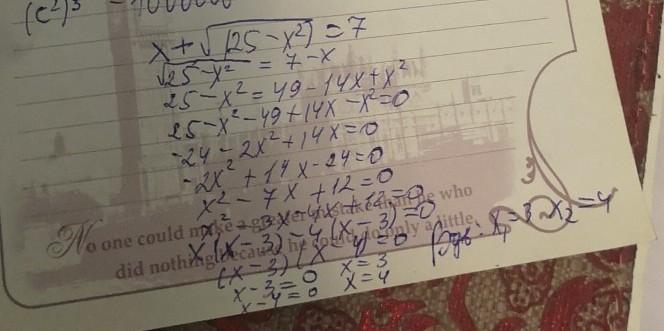 (c²)³ = 1000000
x + √(25 - x²) = 7
√25 - x² = 7 - x
25 - x² = 49 - 14x + x²
25 - x² - 49 + 14x - x² = 0
-24 - 2x² + 14x = 0
-2x² + 14x - 24 = 0
x² - 7x + 12 = 0
x² - 3x - 4x + 12 = 0
x(x - 3) - 4(x - 3) = 0
(x - 3)(x - 4) = 0
x - 3 = 0 x = 3
x - 4 = 0 x = 4
x₁ = 3 x₂ = 4
No one could make a greater mistake than he who
did nothing because he could do only a little.